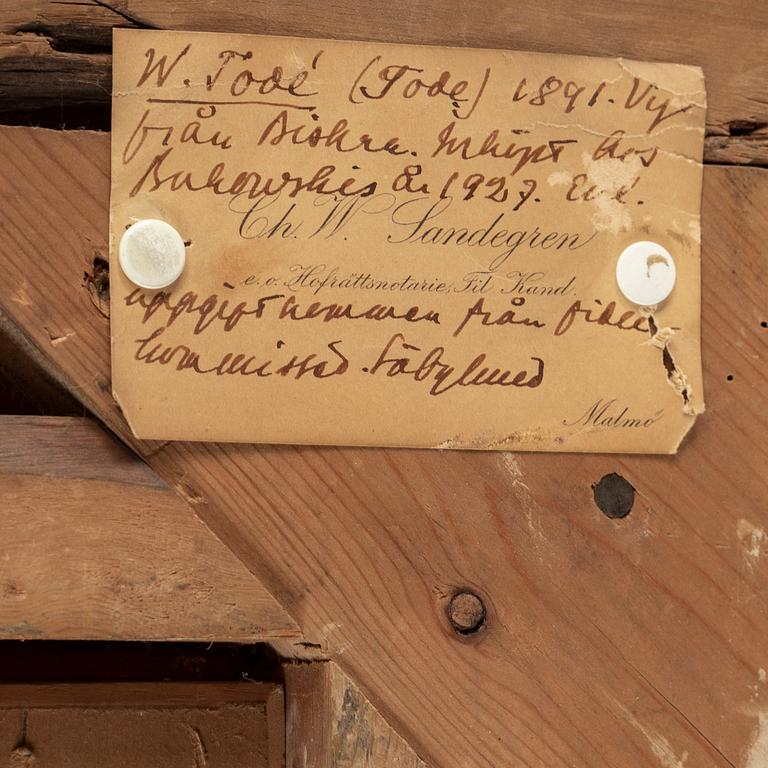 W. Todé (Tode) 1891. Vy
från Biskra. Inköpt hos
Bukowskis år 1927. Enl.
Ch. W. Sandegren
e. o. Hofrättsnotarie, Fil. Kand.
uppgift kommen från fidei-
kommisset Säbylund
Malmö